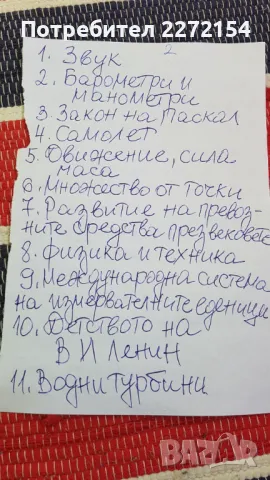 Потребител 2272154
2
1. Звук
2. Барометри и
манометри
3. Закон на Паскал
4. Самолет
5. Движение, сила
маса
6. Множество от точки
7. Развитие на превоз-
ните средства през вековете
8. Физика и техника
9. Международна система
на измервателните еденици
10. Детството на
В И Ленин
11. Водни турбини
BAZAR